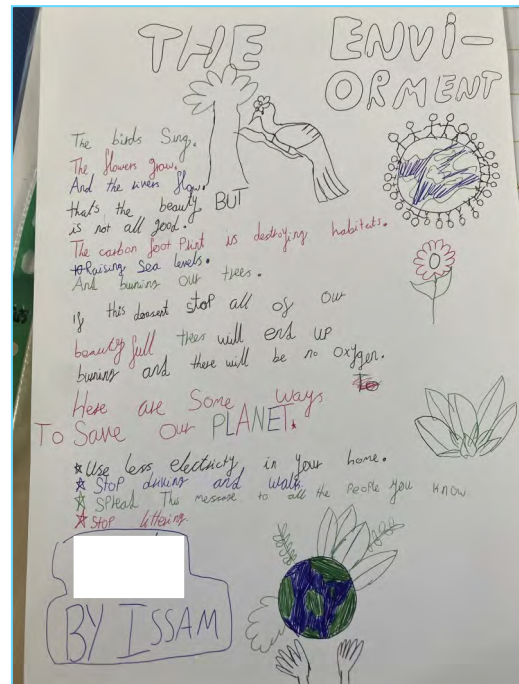 THE ENVI-
ORMENT
The birds Sing.
The flowers grow.
And the rivers flow.
that's the beauty BUT
is not all good.
The carbon foot Print is destroying habitats.
Raising Sea levels.
And burning our trees.
if this doesent stop all of our
beautyfull trees will end up
burning and there will be no oxygen.
Here are Some ways
To Save our PLANET.
☆Use less electricty in your home.
☆ STOP driving and walk.
☆ SPread The message to all the People you know.
☆ STOP littering.
BY ISSAM